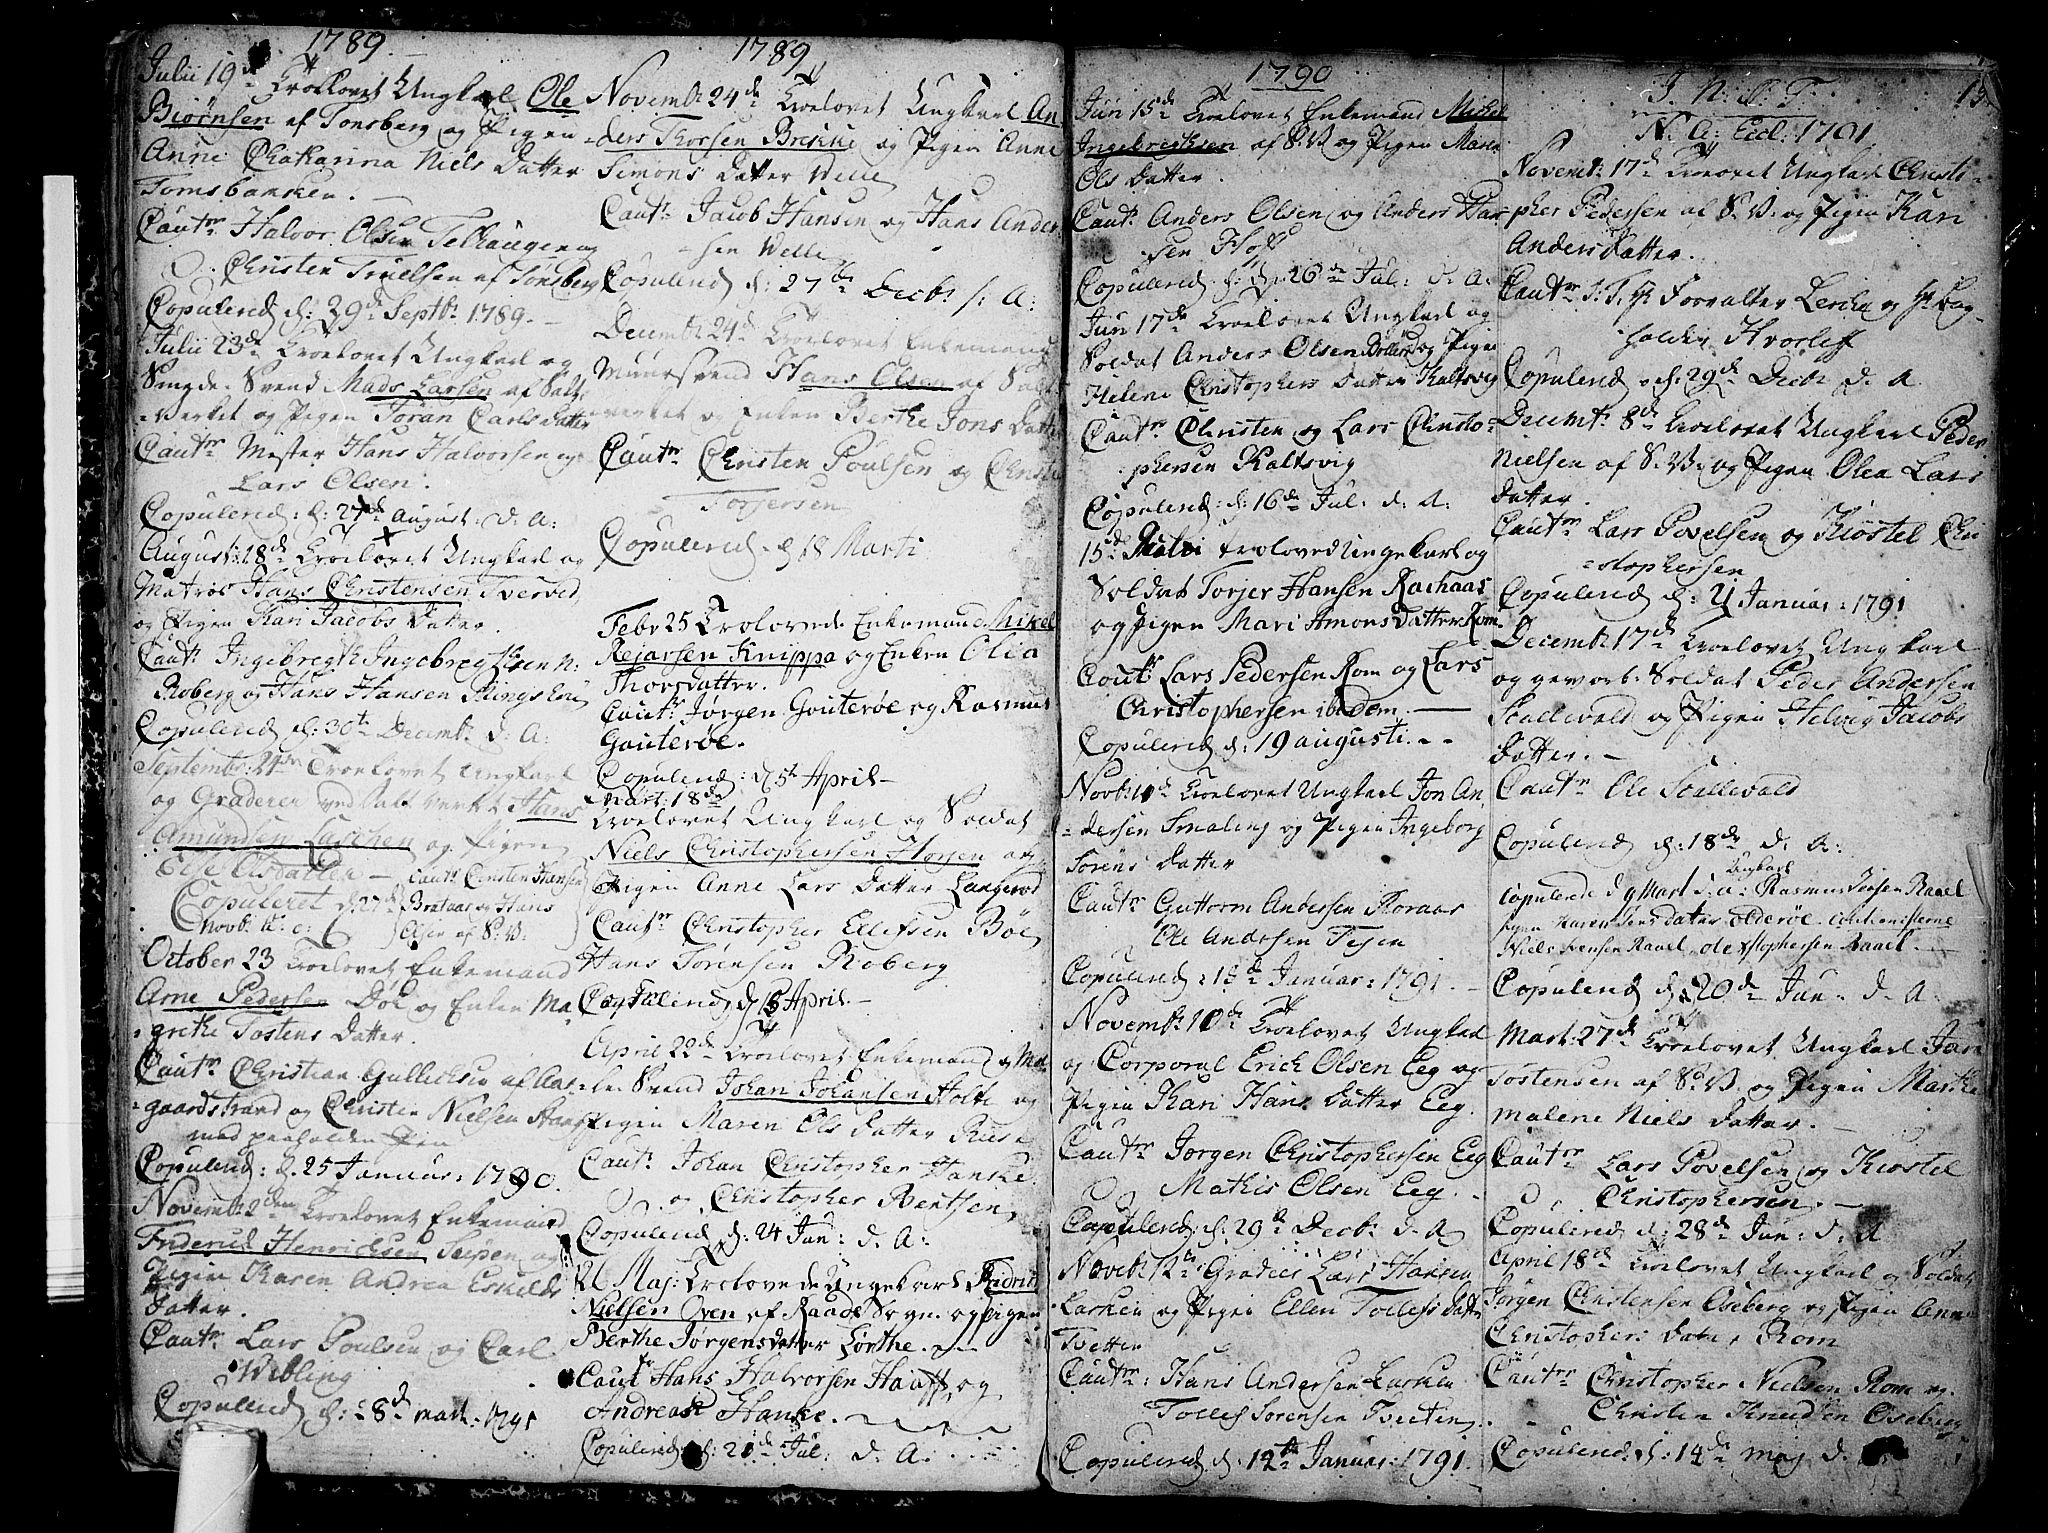 1789.
Julii 19de Troelovet Ungkarl Ole
Biörnsen af Tonsberg og Pigen
Anne Chatharina Niels Datter
Tomsbakken. —
Cautr Halvor Olsen Telhaugen og
Christen Truelsen af Tonsberg
Copulered d: 29de Septbr 1789. —
Julii 23de Troelovet Ungkarl og
Smede-Svend Mads Larsen af Salt-
-Verket og Pigen Joran Carls datter
Cautr Mester Hans Halvorsen og
Lars Olsen.
Copulered: d: 27de August: d: A:
August: 18de Troelovet Ungkarl og
Matros Hans Christensen Tverved
og Pigen Kari Jacobs Datter.
Cautr Ingebregth Ingebregthsen N:
Roberg og Hans Hansen
Copulered d: 30te Decembr d: A:
Septembr: 24de Troelovet Ungkarl
og Graderer ved Salt Verket Hans
Amundsen Laschen og Pigen
Else Olsdatter — Cautr Christen Hansen
Copuleret d: 27de Brataas og Hans
Novb: Olsen af S: V:
October 23 Troelovet Enkemand
Arne Pedersen Döe og Enken Ma-
-grethe Tostens Datter.
Cautr Christian Gullichsen af Aas-
-gaardstrand og Christen Nielsen
med paaholden Pen
Copulered: d. 25 Januar: 1790.
Novembr 2den Troelovet Enkemand
Friderich Henrichsen Seipen og
Pigen Karen Andrea Eskilds
Datter.
Cautr Lars Poulsen og Carl
Wibling
Copulered d: 28de Mart: 1791
1789
Novembr 24de Troelovet Ungkarl An-
-ders Thorsen Brekke og Pigen Anne
Simons Datter Welle
Cautr Jacob Hansen og Hans Ander-
-sen Welle
Copulered d: 27de Decbr d: A:
Decembr 24de Troelovet Enkemand
Muursvend Hans Olsen af Salt-
-verket og Enken Berthe Jons Datter
Cautr Christen Poulsen og Christen
Torjersen
Copulered d 18 Marti
Febr 25 Trolovede Enkemand Mikel
Rejersen Knippa og Enken Olea
Thorsdatter.
Cautr Jørgen Gouterøe og Rasmus
Gouterøe.
Copulered: d 5te April —
Mart: 18de
Troelovet Ungkarl og Soldat
Niels Christophersen Horjen og
Pigen Anne Lars Datter Langerød
Cautr Christopher Ellefsen Böe
Hans Sörensen Roberg
Copulered d 15 April. —
April 22de Troelovet Enkemand og Møl-
le Svend Johan Johansen Holte og
Pigen Maren Ols Datter Ruse
Cautr Johan Christopher Hanske
og Christopher Berthsen
Copulered d: 24 Jun: d. A:
21 Maj: Trolovede Ungekarl Fridrich
Nielsen Oven af Raade Sogn og Pigen
Berthe Jørgensdatter Lørthe. —
Caut Hans Halvorsen Haaff, og
Andreas Hanke.
Copulered d: 21de Jul: d: A:
1790
Jun 15de Troelovet Enkemand Mickel
Ingebregthsen af S.V og Pigen Maria
Ols Datter.
Cautr Anders Olsen og Anders Han-
sen Hoff
Copulered d: 26de Jul: d. A.
Jun 17de Troelovet Ungkarl og
Soldat Anders Olsen Bollerød og Pigen
Helene Christophers Datter Kaltsvig
Cautr Christen og Lars Christo-
phersen Kaltsvig
Copulered d: 16de Jul: d. A:
15de Julii troloved Ungekarl og
Soldat Torjer Hansen Rachaas
og Pigen Mari Amons datter Rom
Cautr Lars Pedersen Rom og Lars
Christophersen ibidem. —
Copulered d: 19 augusti. —
Novbr 10de Troelovet Ungkarl Jon An-
-dersen Smaling og Pigen Ingeborg
Sörens Datter
Cautr Guttorm Andersen Roraas
Ole Andersen Tejen
Copulered: 13de Januar: 1791. —
Novembr 10de Troelovet Ungkarl
og Corporal Erich Olsen Eeg og
Pigen Kari Hans Datter Eeg.
Cautr Jørgen Christophersen Eeg
Mathis Olsen Eeg.
Copulered: d. 29de Decbr. d. A
Novembr 12te Graderer Lars Hansen
Lasken og Pigen Ellen Tollefs datter
Tvetten
Cautr: Hans Andersen Lasken
Tollef Sorensen Tvetten
Copulered d: 14de Januar: 1791.
J. N. J. T.
N. A: Eccl: 1791
Novembr: 17de Troelovet Ungkarl Christo-
pher Pedersen af S: V: og Pigen Kari
Anders Datter.
Cautr S: T. Hr Forvalter Lerche og Hr Bog-
holder Hvorlef
Copulered d: 29de Decbr d. A
Decembr 8de Troelovet Ungkarl Peder
Nielsen af S: V: og Pigen Olea Lars
Datter.
Cautr Lars Povelsen og Kiøstel Chri-
-stophersen
Copulered d: 21 Januar: 1791
Decembr 17de Troelovet Ungkarl
og gevorb: Soldat Peder Andersen
Scallevald og Pigen Helvig Jacobs
Datter. —
Cautr Ole Scallevald
Copulered d: 18de d. A:
Ungkarl
Copulerede d 9 Mart d: a: Rasmus Jversen Rauel
Pigen Karen Jens datter Olderøe. Cautionisterne
Niels Jvensen Rauel. Ole Xstophersen Rauel. —
Copulered d: 20de Jun: d. A:
Mart: 27de Troelovet Ungkarl Jan
Tostensen af S: V. og Pigen Marthe
Malene Niels Datter. —
Cautr Lars Povelsen og Kiøstel
Christophersen. —
Copulered d: 28de Jun: d: A
April 18de Troelovet Ungkarl og Soldat
Jørgen Christensen Oseberg og Pigen Anne
Christophers Dater Rom
Cautr Christopher Nielsen Rom og
Christen Knudsen Oseberg
Copulered: d: 14de Maj d.